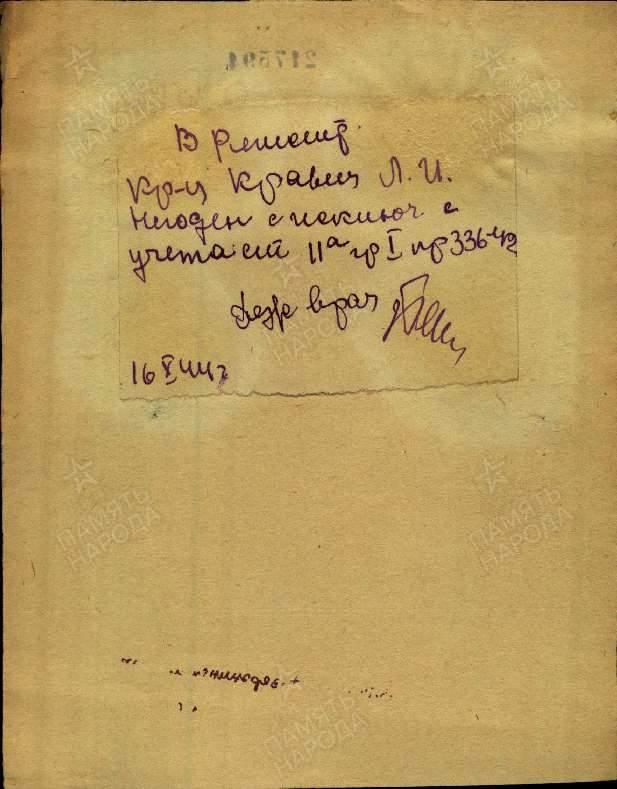 217594
В
Кр-ц Кравец Л. И.
Негоден с исключ с
учета ст 11а гр I пр 336-42
Деж врач
16 V 44 г
ПАМЯТЬ НАРОДА
ПАМЯТЬ НАРОДА
ПАМЯТЬ НАРОДА
ПАМЯТЬ НАРОДА
ПАМЯТЬ НАРОДА
ПАМЯТЬ НАРОДА